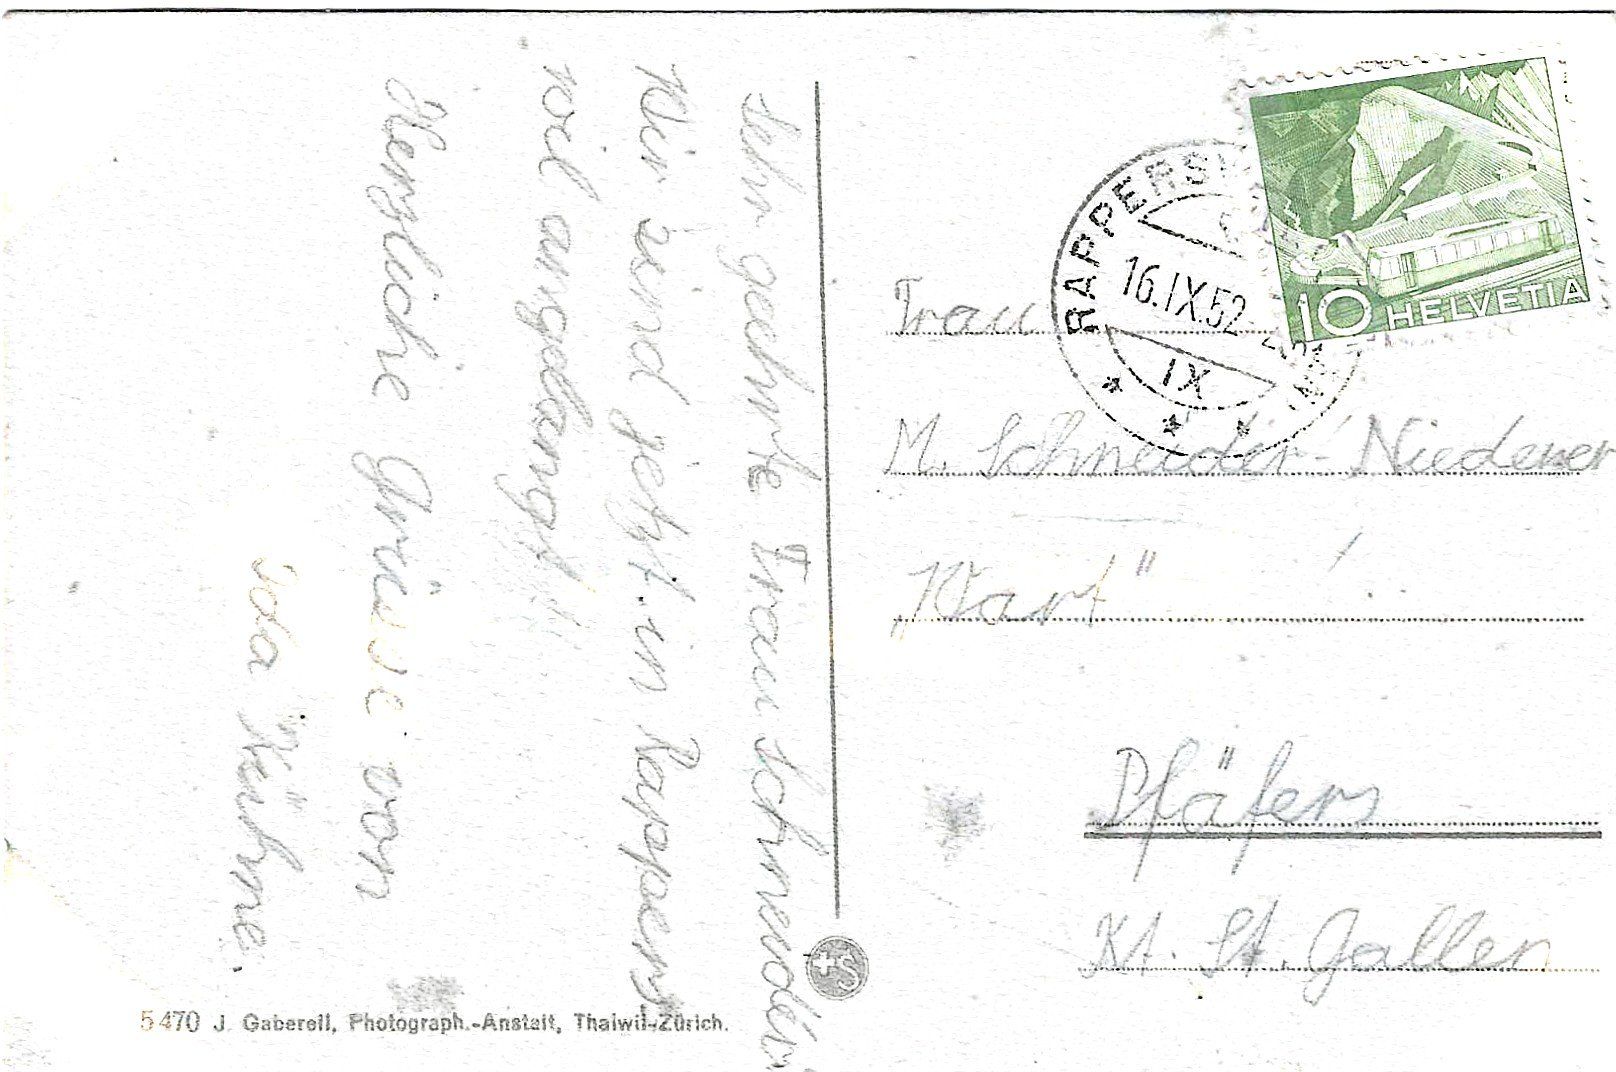 Sehr geehrte Frau Schneider
Wir sind jetzt in Rappers
wil angelangt.
Herzliche Grüsse von
Ida Kühne.
10 HELVETIA
RAPPERS
16.IX.52
IX
Frau
M. Schneider-Niederer
"Wart"
Pfäfers
Kt. St. Gallen
5470 J. Gaberell, Photograph.-Anstalt, Thalwil-Zürich.